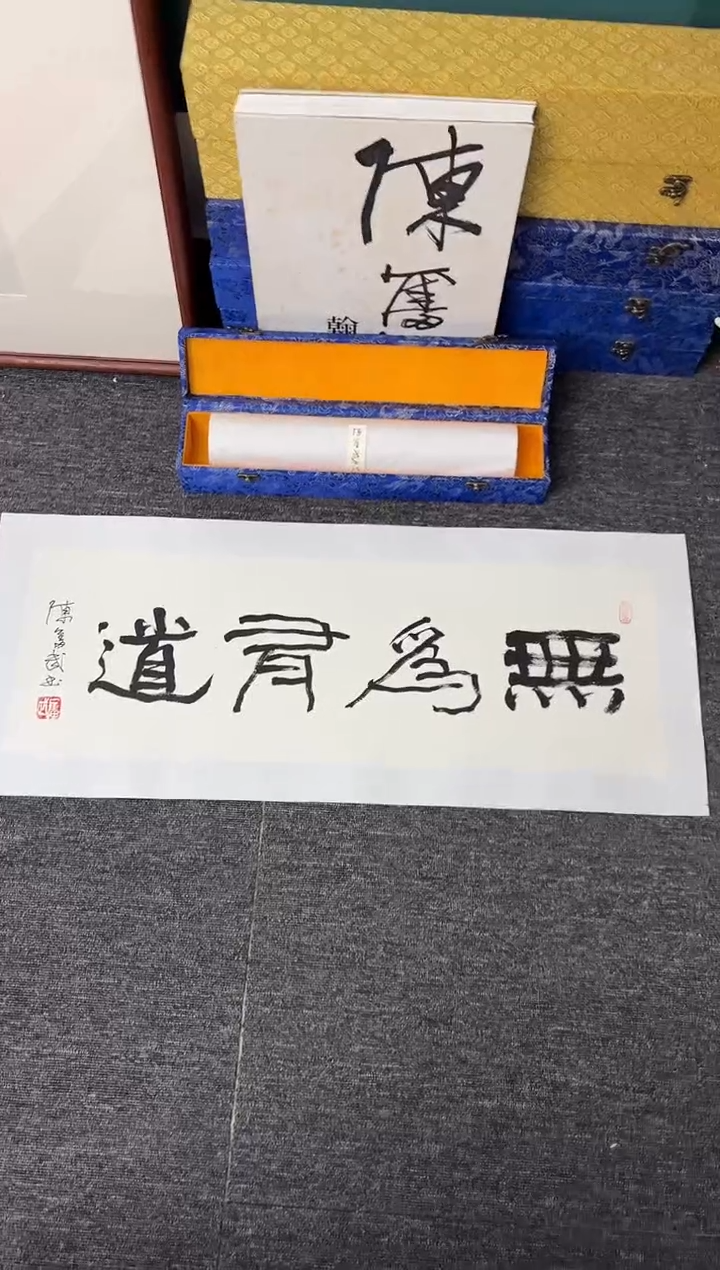 陳奮
翰
無爲有道
陳奮武書